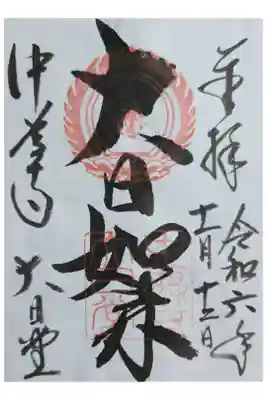 奉拝
令和六年
十一月
大日如来
中尊寺 大日堂